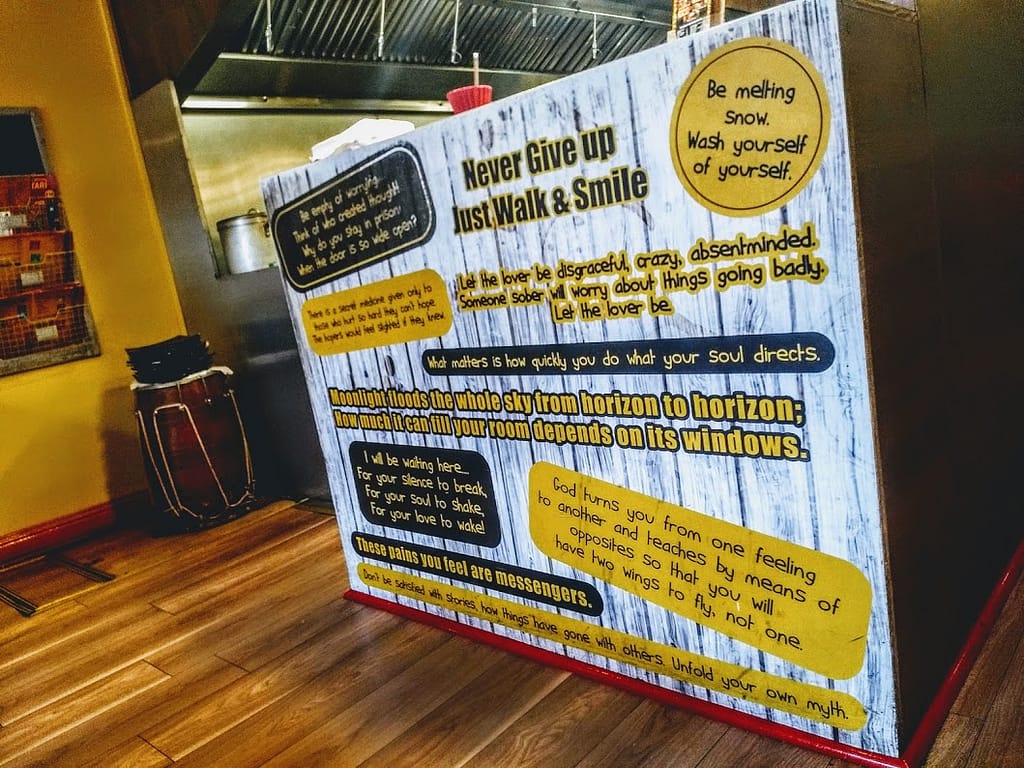 Be melting
snow.
Wash yourself
of yourself.
Never Give up
Just Walk & Smile
Be empty of worrying.
Think of who created thought!
Why do you stay in prison?
When the door is so wide open?
Let the lover be disgraceful, crazy, absentminded.
Someone sober will worry about things going badly.
Let the lover be.
There is a secret medicine given only to
those who hurt so hard they can't hope.
The hopers would feel slighted if they knew.
What matters is how quickly you do what your soul directs.
Moonlight floods the whole sky from horizon to horizon;
How much it can fill your room depends on its windows.
I will be waiting here...
For your silence to break,
For your soul to shake,
For your love to wake!
God turns you from one feeling
to another and teaches by means of
opposites so that you will
have two wings to fly, not one.
These pains you feel are messengers.
Don't be satisfied with stories, how things have gone with others. Unfold your own myth.